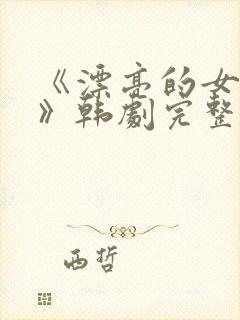 《漂亮的女
》韩劇完整
西哲